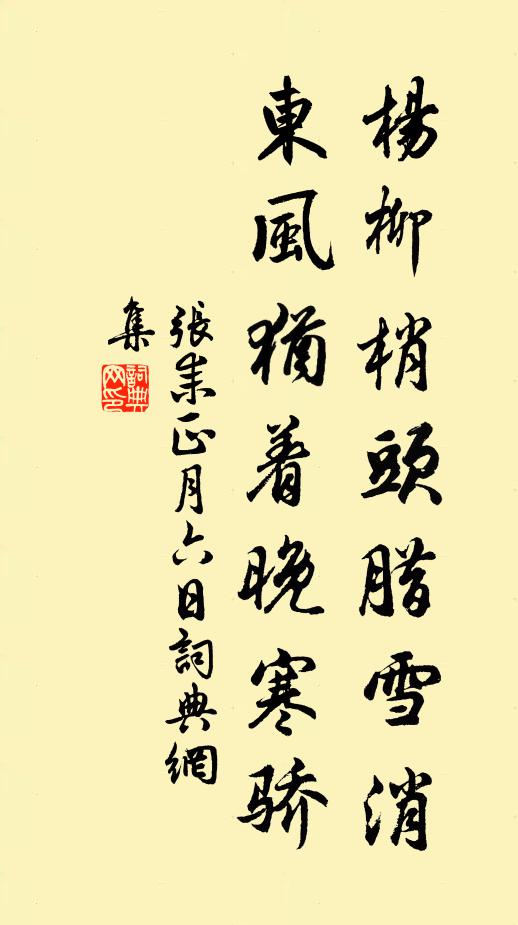 楊柳梢頭腊雪消
東風猶着晚寒骄
張耒正月六日詞典網
集
詞典
网印